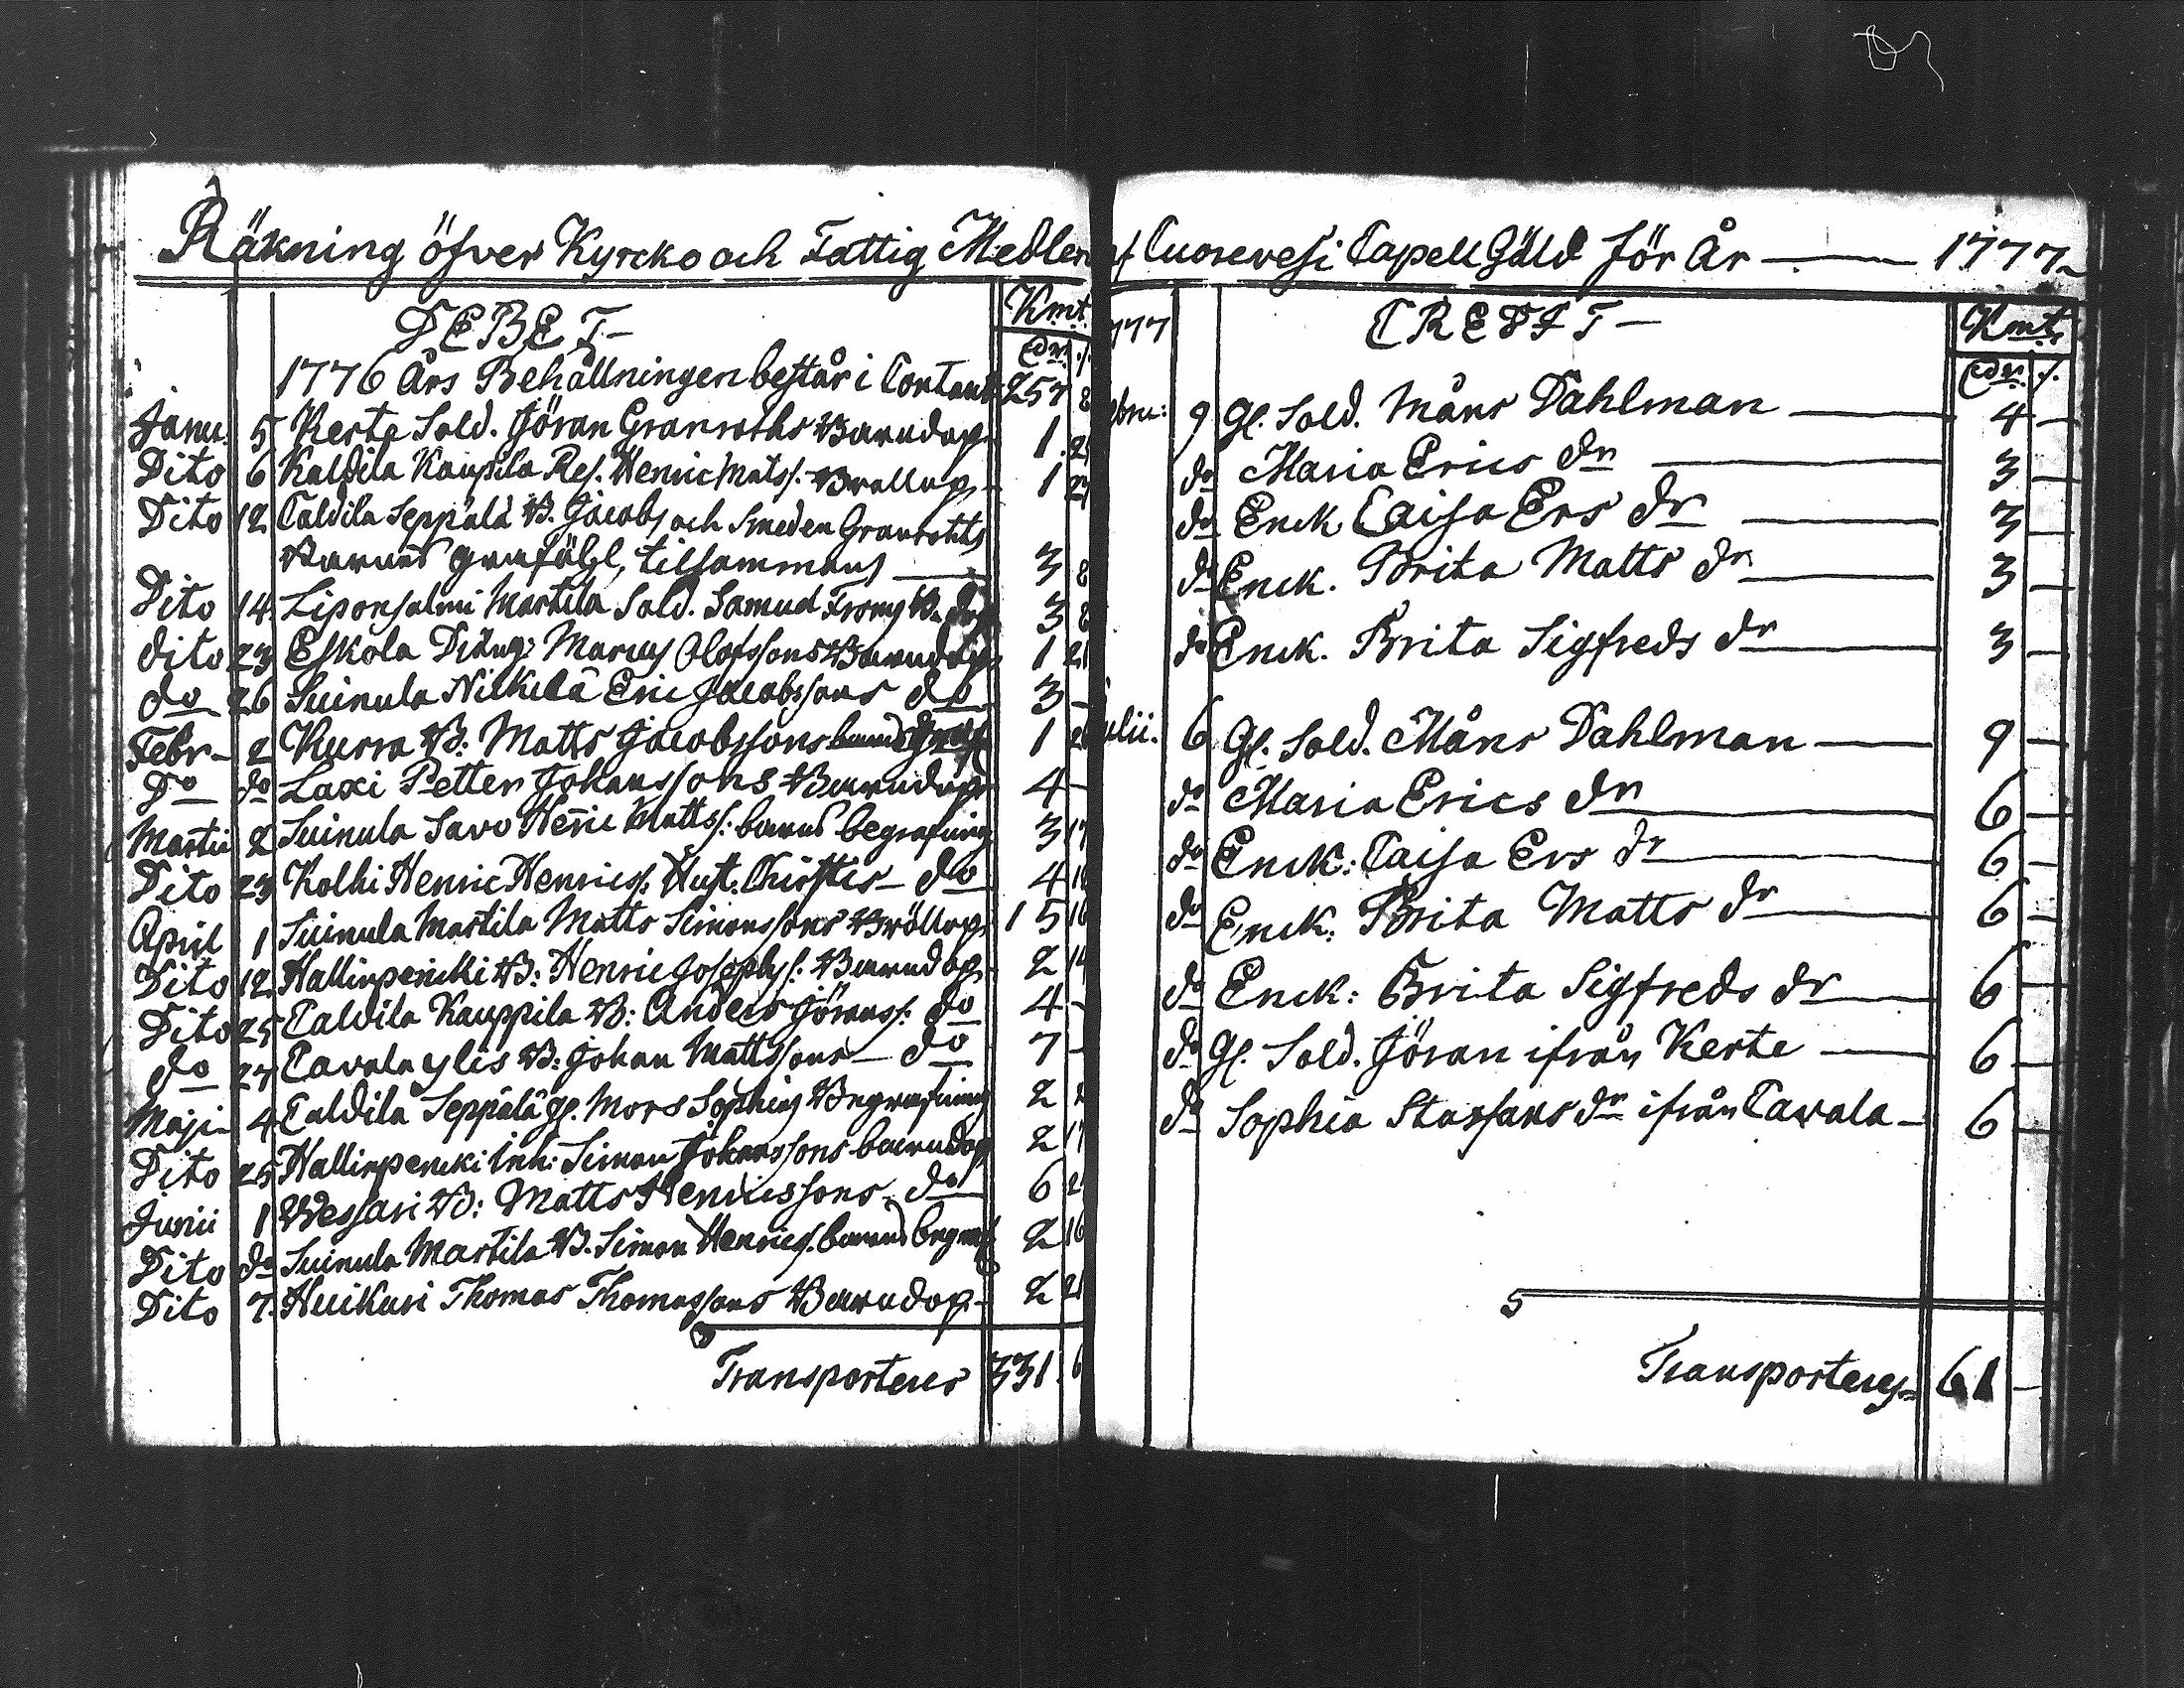 Räkning öfver Kyrcko och Fattig Medlen af Cuorevesi Capell Gäld för År — 1777
DEBET
Kmt.
Cdr. /.
1776 Års Behållningen består i Contant 257 8
Janu. 5 Kerte Sold. Jöran Granroths Barndop 1
Dito 6 Kaldila Kaupila Res. Henric Mats/: Bröllop 1
Dito 12 Caldila Seppälä B. Jacobs och Smeden Granroths
Barnas grafööl, tillsammans 3 8
Dito 14 Liponsalmi Martila Sold. Samuel 3 8
dito 23 Eskola Marcus Olofssons Barndop 1 21
do 26 Suinula Nickilä Eric Jacobssons do 3 —
Febr 2 Kurra B: Matts Jacobssons barns 1
Do do Laxi Petter Johanssons Barndop 4 —
Martii 2 Suinula Savo Henric Matts/: barns begrafning 3 17
Dito 23 Kolhi Henric Henrics/: Hust. do 4
April 1 Suinula Martila Matts Simonssons Bröllop 15 16
Dito 12 Hallinpencki B: Henric Josephs/: Barndop 2
Dito 25 Caldila Kauppila B: Anders Jörans/: do 4 —
do 27 Cavala ylis B: Johan Mattssons — do 7 —
Maji 4 Caldila Seppälä gl. Mors Sophias Begrafning 2
Dito 25 Hallinpencki Inh: Simon Johanssons barndop 2 17
Junii 1 Wessari B: Matts Henricssons do 6
Dito do Suinula Martila B. Simon Henrics. barns begraf 2 16
Dito 7. Huikuri Thomas Thomassons Barndop 2 21
Transporteres 331. 6
1777
CREDIT —
Kmt.
Cdr. /.
Febru: 9 Gl. Sold. Måns Dahlman — 4 —
do Maria Erics dr — 3 —
do Enck Caisa Ers dr — 3 —
do Enck. Brita Matts dr — 3 —
do Enck. Brita Sigfreds dr — 3 —
Julii. 6 Gl. Sold. Måns Dahlman — 9 —
do Maria Erics dr — 6 —
do Enck: Caisa Ers dr — 6 —
do Enck: Brita Matts dr — 6 —
do Enck: Brita Sigfreds dr — 6 —
do Gl. Sold. Jöran ifrån Kerte — 6 —
do Sophia Staffans dr ifrån Cavala — 6 —
Transporteres 61 —